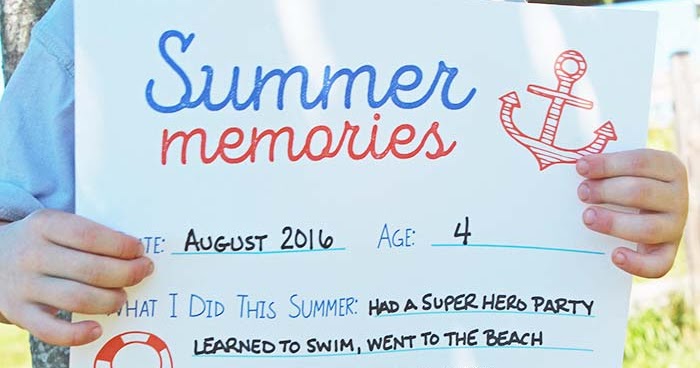 Summer
memories
DATE: AUGUST 2016 AGE: 4
WHAT I DID THIS SUMMER: HAD A SUPER HERO PARTY
LEARNED TO SWIM, WENT TO THE BEACH